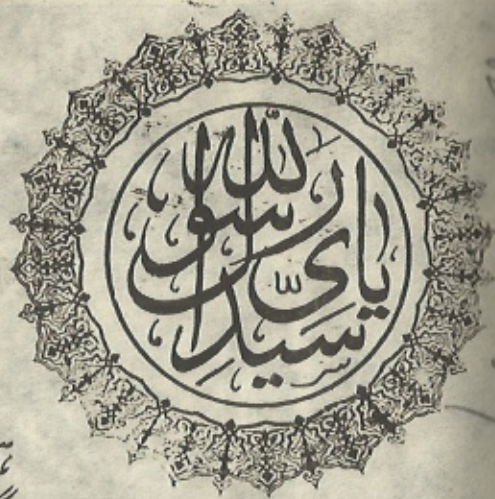 يا سيدى رسول الله